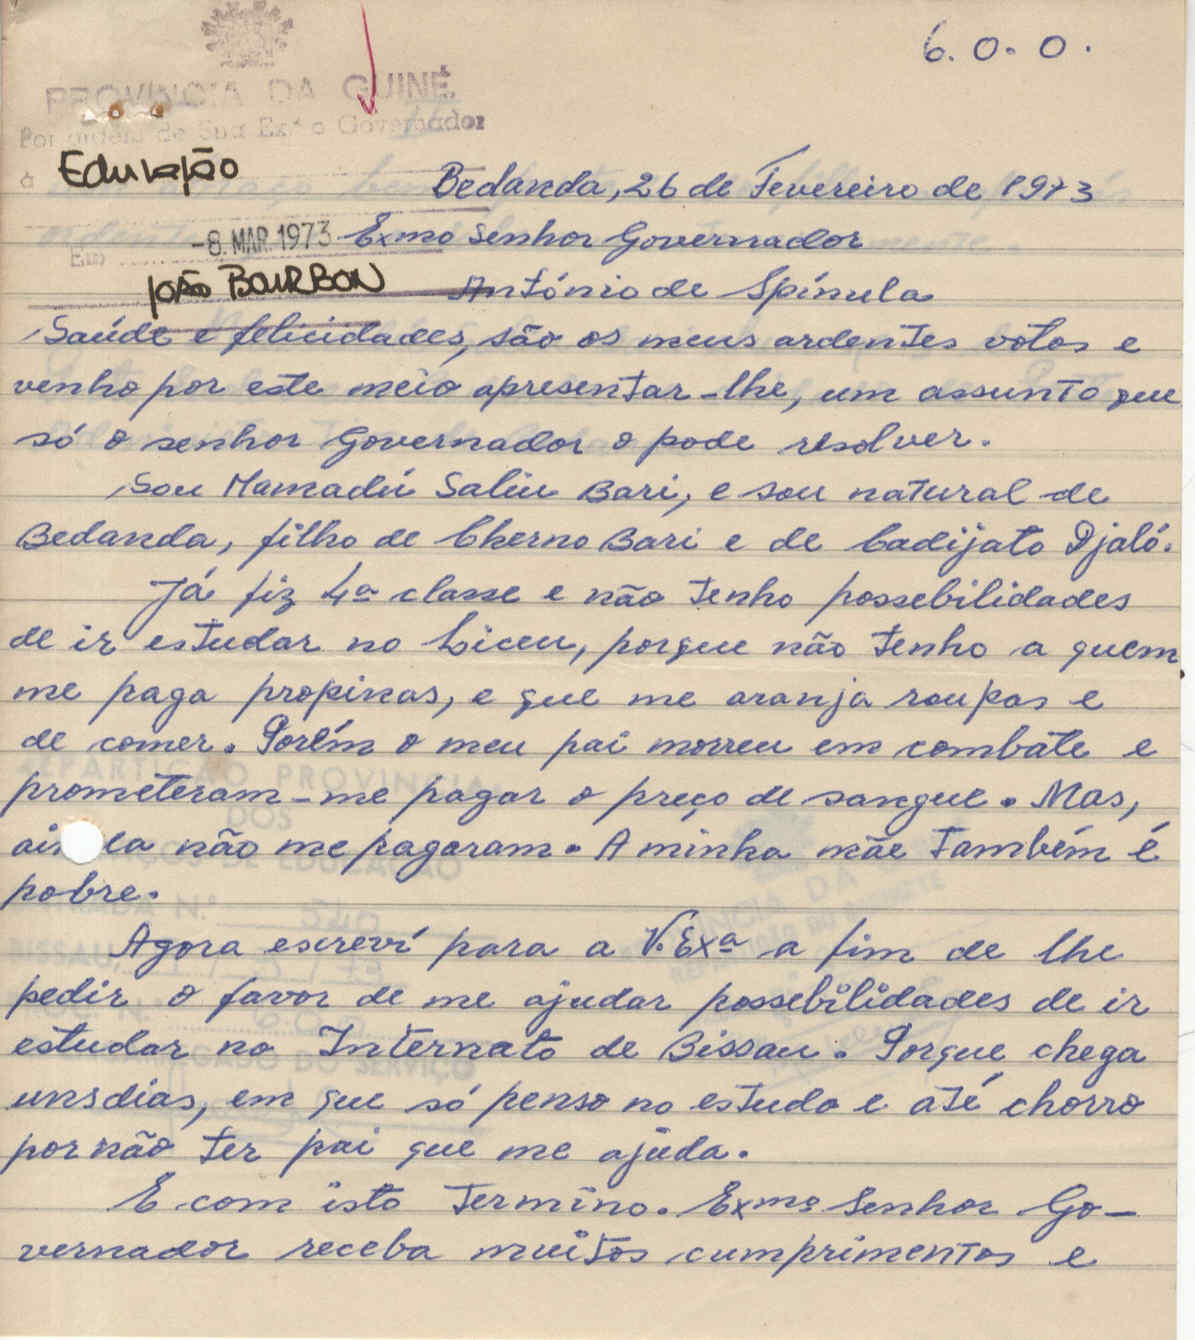 6.0.0.
PROVÍNCIA DA GUINÉ
Por ordem de Sua Exª o Governador
à Educação
Bedanda, 26 de Fevereiro de 1973
Em -8. MAR. 1973
Exmo Senhor Governador
JOÃO BOURBON
António de Spínula
Saúde e felicidades, são os meus ardentes votos e
venho por este meio apresentar-lhe, um assunto que
só o senhor Governador o pode resolver.
Sou Mamadú Saliu Bari, e sou natural de
Bedanda, filho de Cherno Bari e de Cadijato Djaló.
Já fiz 4ª classe e não tenho possebilidades
de ir estudar no Liceu, porque não tenho a quem
me paga propinas, e que me aranja roupas e
de comer. Porém o meu pai morreu em combate e
prometeram-me pagar o preço de sangue. Mas,
ainda não me pagaram. A minha mãe também é
pobre.
Agora escreví para a V. Exª a fim de lhe
pedir o favor de me ajudar possebilidades de ir
estudar no Internato de Bissau. Porque chega
unsdias, em que só penso no estudo e até chorro
por não ter pai que me ajuda.
E com isto termino. Exmo Senhor Go-
vernador receba muitos cumprimentos e